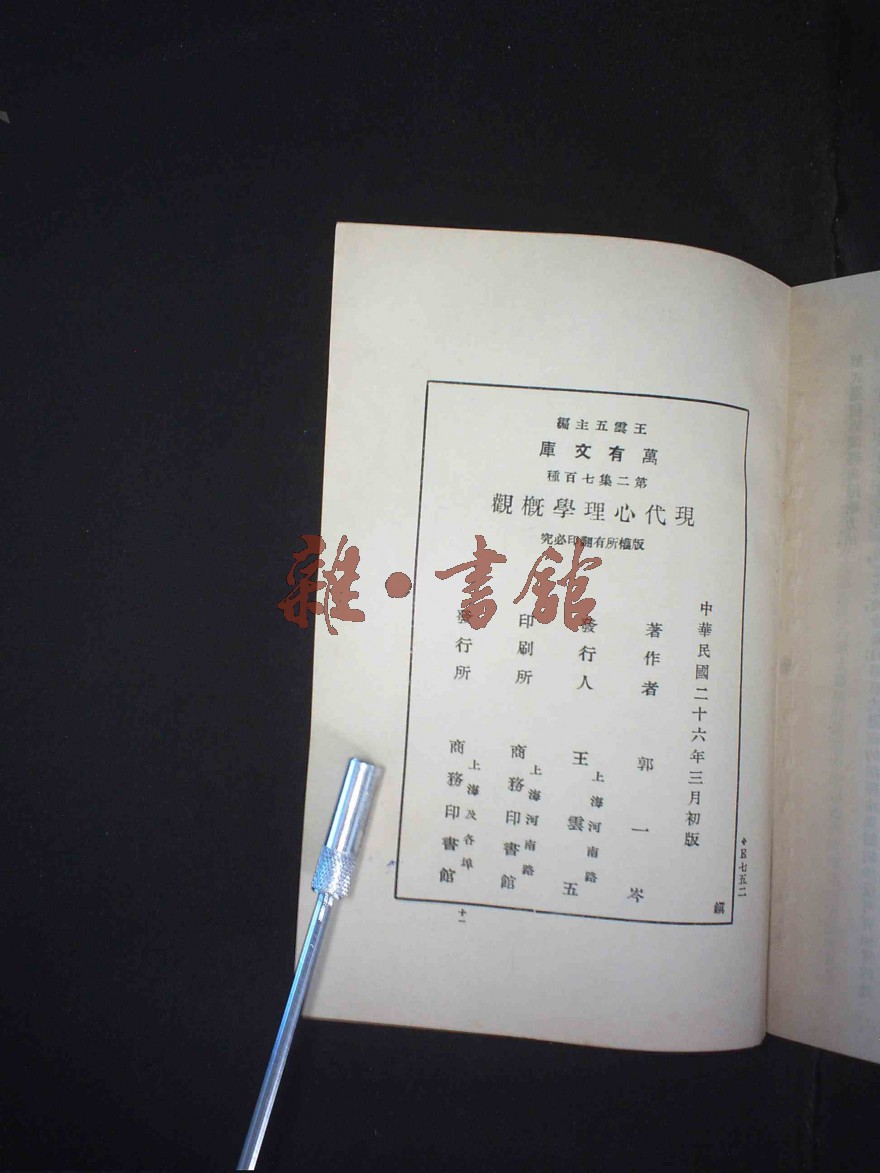 王雲五主編
萬有文庫
第二集七百種
現代心理學概觀
版權所有翻印必究
中華民國二十六年三月初版
著作者 郭一岑
發行人 王雲五
上海河南路
印刷所 商務印書館
上海河南路
發行所 商務印書館
上海及各埠
E七五二
十一
雜·書館